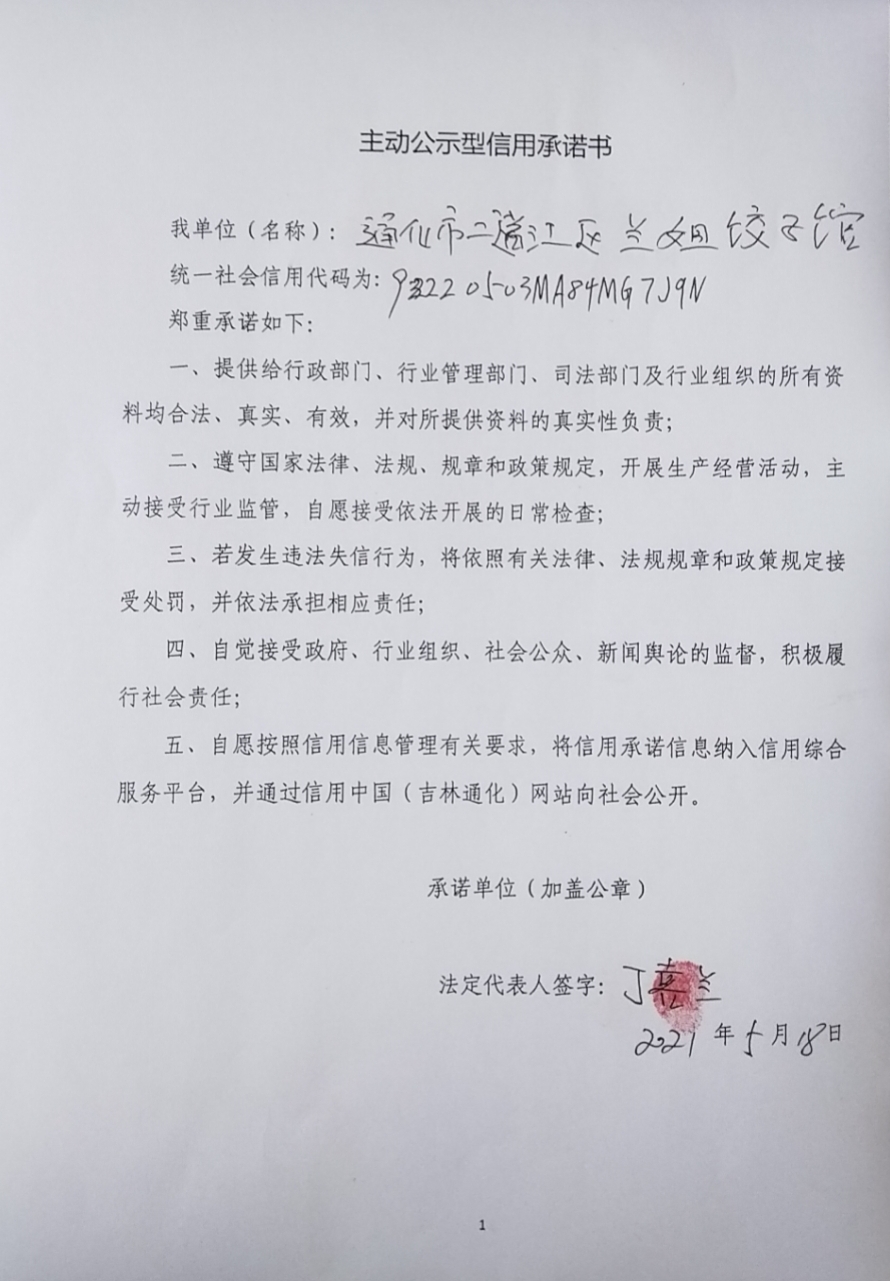 主动公示型信用承诺书
我单位（名称）：通化市二道江区兰姐饺子馆
统一社会信用代码为：92220503MA84MG7J9N
郑重承诺如下：
一、提供给行政部门、行业管理部门、司法部门及行业组织的所有资
料均合法、真实、有效，并对所提供资料的真实性负责；
二、遵守国家法律、法规、规章和政策规定，开展生产经营活动，主
动接受行业监管，自愿接受依法开展的日常检查；
三、若发生违法失信行为，将依照有关法律、法规规章和政策规定接
受处罚，并依法承担相应责任；
四、自觉接受政府、行业组织、社会公众、新闻舆论的监督，积极履
行社会责任；
五、自愿按照信用信息管理有关要求，将信用承诺信息纳入信用综合
服务平台，并通过信用中国（吉林通化）网站向社会公开。
承诺单位（加盖公章）
法定代表人签字：丁 兰
2021年5月18日
1